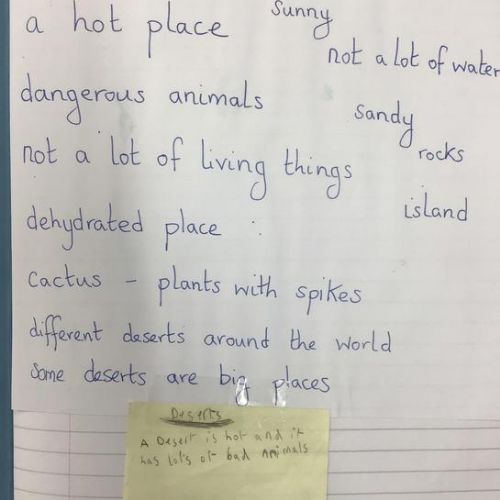 a hot place
Sunny
not a lot of water
dangerous animals
Sandy
rocks
not a lot of living things
island
dehydrated place :
Cactus - plants with spikes
different deserts around the world
Some deserts are big places
Deserts
A Desert is hot and it
has lots of bad animals